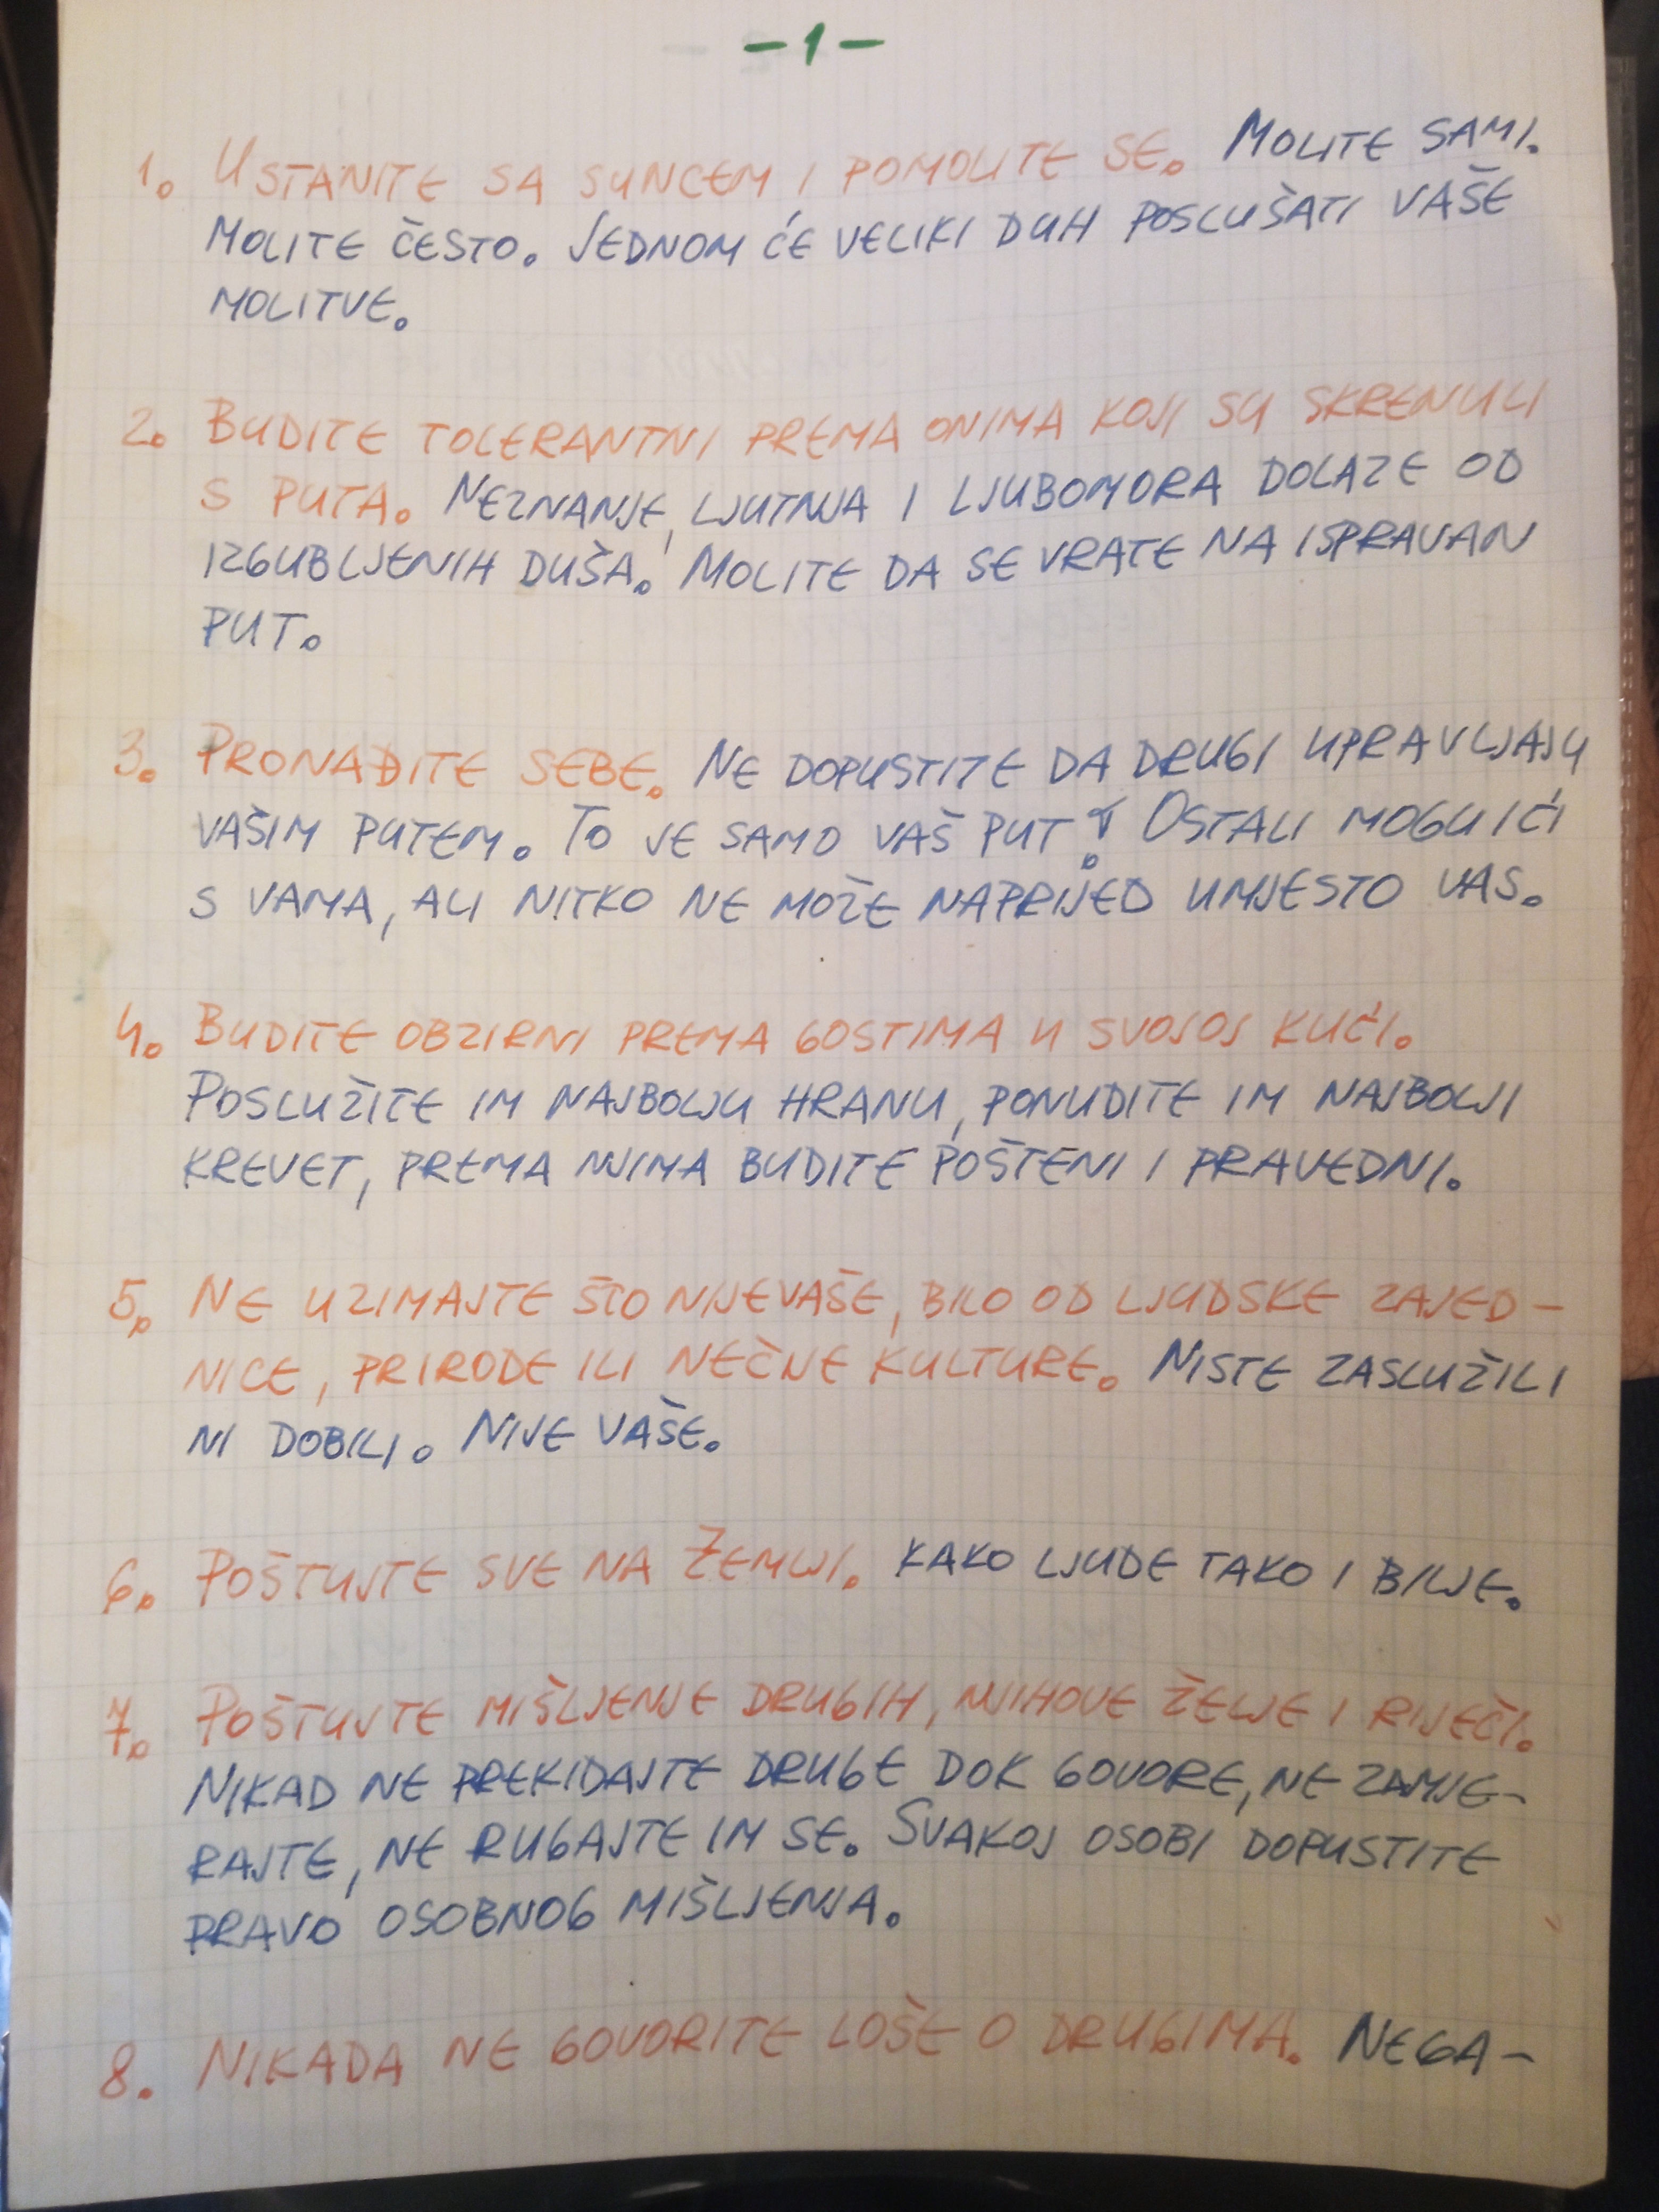 -1-
1. USTANITE SA SUNCEM I POMOLITE SE. MOLITE SAMI.
MOLITE ČESTO. JEDNOM ĆE VELIKI DUH POSLUŠATI VAŠE
MOLITVE.
2. BUDITE TOLERANTNI PREMA ONIMA KOJI SU SKRENULI
S PUTA. NEZNANJE, LJUTNJA I LJUBOMORA DOLAZE OD
IZGUBLJENIH DUŠA. MOLITE DA SE VRATE NA ISPRAVAN
PUT.
3. PRONAĐITE SEBE. NE DOPUSTITE DA DRUGI UPRAVLJAJU
VAŠIM PUTEM. TO JE SAMO VAŠ PUT! OSTALI MOGU IĆI
S VAMA, ALI NITKO NE MOŽE NAPRIJED UMJESTO VAS.
4. BUDITE OBZIRNI PREMA GOSTIMA U SVOJOJ KUĆI.
POSLUŽITE IM NAJBOLJU HRANU, PONUDITE IM NAJBOLJI
KREVET, PREMA NJIMA BUDITE POŠTENI I PRAVEDNI.
5. NE UZIMAJTE ŠTO NIJE VAŠE, BILO OD LJUDSKE ZAJED-
NICE, PRIRODE ILI NEČNE KULTURE. NISTE ZASLUŽILI
NI DOBILI. NIJE VAŠE.
6. POŠTUJTE SVE NA ZEMLJI. KAKO LJUDE TAKO I BILJE.
7. POŠTUJTE MIŠLJENJE DRUGIH, NJIHOVE ŽELJE I RIJEČI.
NIKAD NE PREKIDAJTE DRUGE DOK GOVORE, NE ZAMJE-
RAJTE, NE RUGAJTE IM SE. SVAKOJ OSOBI DOPUSTITE
PRAVO OSOBNOG MIŠLJENJA.
8. NIKADA NE GOVORITE LOŠE O DRUGIMA. NEGA-